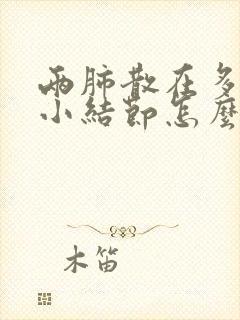 兩肺散在多
小結節怎麼
木笛